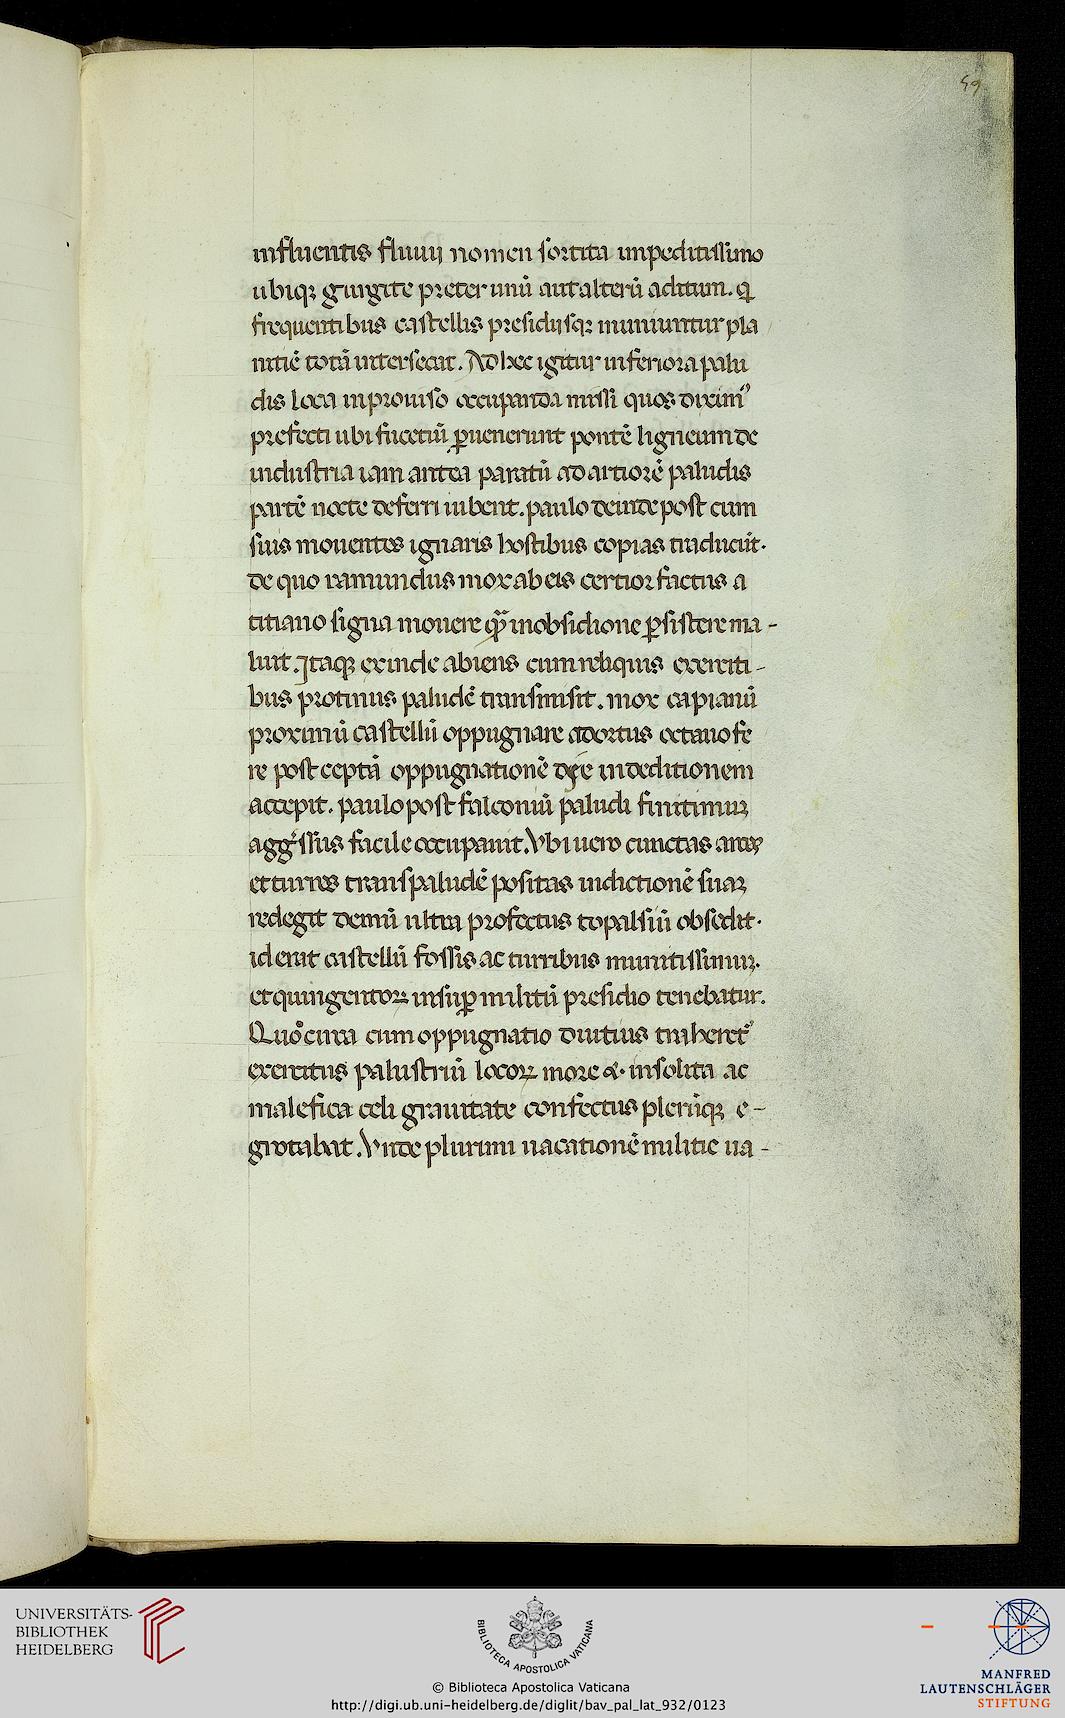 59
influentis fluuij nomen sortita impeditissimo
ubiqꝫ gurgite preter unū aut alterū aditum. q̄
frequentibus castellis presidijsqꝫ muniuntur pla
nitiē totā intersecat. Ad hec igitur inferiora palu
dis loca inprouiso occupanda missi quos diximꝰ
prefecti ubi fucetiū ꝑuenerunt pontē ligneum de
industria iam antea paratū ad artiorē paludis
partē nocte deferri iubent. paulo deinde post cum
suis mouentes ignaris hostibus copias traducūt.
de quo ramundus mox ab eis certior factus a
titiano signa mouere qꝫ̄ in obsidione ꝑsistere ma-
luit. Itaqꝫ exinde abiens cum reliquis exerciti-
bus protinus paludē transmisit. mox capianū
proximū castellū oppugnare adortus octauo fe
re post ceptā oppugnationē die in deditionem
accepit. paulo post falconiū paludi finitimuꝫ
aggͥssus facile occupauit. Vbi uero cunctas arces
et turres trans paludē positas in dictionē suaꝫ
redegit demū ultra profectus topalsiū obsedit.
id erat castellū fossis ac turribus munitissimuꝫ.
et quingentoꝝ insuꝑ militū presidio tenebatur.
Quo circa cum oppugnatio diutius traheretᷣ
exercitus palustriū locoꝝ more &. insolita ac
malefica celi grauitate confectus plerūqꝫ e-
grotabat. Vnde plurimi uacationē militie ua-
UNIVERSITÄTS-
BIBLIOTHEK
HEIDELBERG
BIBLIOTECA APOSTOLICA VATICANA
© Biblioteca Apostolica Vaticana
http://digi.ub.uni-heidelberg.de/diglit/bav_pal_lat_932/0123
MANFRED
LAUTENSCHLÄGER
STIFTUNG